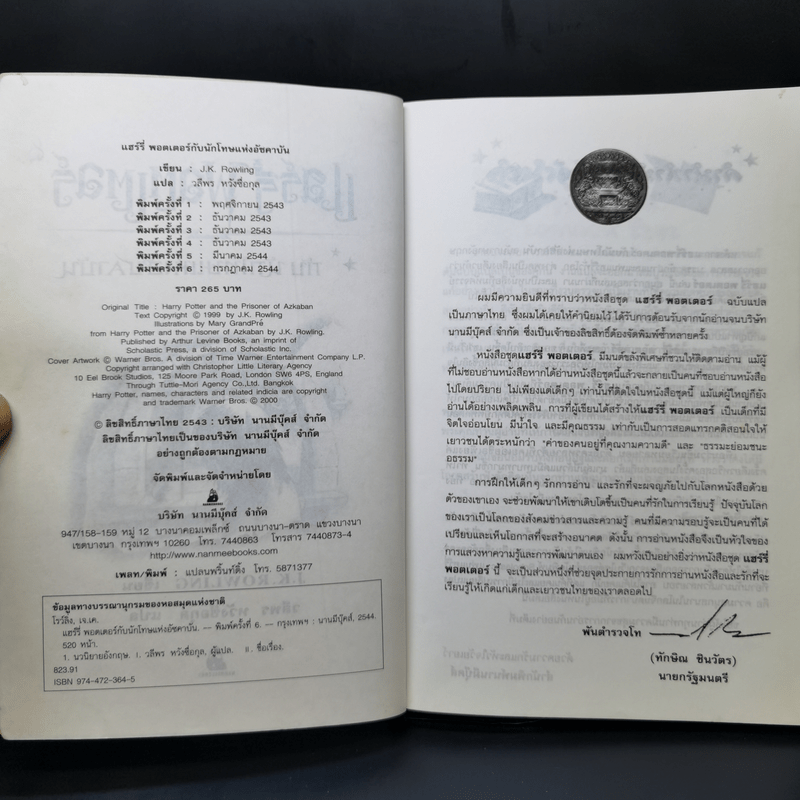 แฮร์รี่ พอตเตอร์กับนักโทษแห่งอัซคาบัน
เขียน : J.K. Rowling
แปล : วลีพร หวังซื่อกุล
พิมพ์ครั้งที่ 1 : พฤศจิกายน 2543
พิมพ์ครั้งที่ 2 : ธันวาคม 2543
พิมพ์ครั้งที่ 3 : ธันวาคม 2543
พิมพ์ครั้งที่ 4 : ธันวาคม 2543
พิมพ์ครั้งที่ 5 : มีนาคม 2544
พิมพ์ครั้งที่ 6 : กรกฎาคม 2544
ราคา 265 บาท
Original Title : Harry Potter and the Prisoner of Azkaban
Text Copyright © 1999 by J.K. Rowling
Illustrations by Mary GrandPré
from Harry Potter and the Prisoner of Azkaban by J.K. Rowling.
Published by Arthur Levine Books, an imprint of
Scholastic Press, a division of Scholastic Inc.
Cover Artwork © Warner Bros. A division of Time Warner Entertainment Company L.P.
Copyright arranged with Christopher Little Literary Agency
10 Eel Brook Studios, 125 Moore Park Road, London SW6 4PS, England
Through Tuttle-Mori Agency Co.,Ltd. Bangkok
Harry Potter, names, characters and related indicia are copyright
and trademark Warner Bros. © 2000
© ลิขสิทธิ์ภาษาไทย 2543 : บริษัท นานมีบุ๊คส์ จำกัด
ลิขสิทธิ์ภาษาไทยเป็นของบริษัท นานมีบุ๊คส์ จำกัด
อย่างถูกต้องตามกฎหมาย
จัดพิมพ์และจัดจำหน่ายโดย
บริษัท นานมีบุ๊คส์ จำกัด
947/158-159 หมู่ 12 บางนาคอมเพล็กซ์ ถนนบางนา-ตราด แขวงบางนา
เขตบางนา กรุงเทพฯ 10260 โทร. 7440863 โทรสาร 7440873-4
http://www.nanmeebooks.com
เพลท/พิมพ์ : แปลนพริ้นท์ติ้ง โทร. 5871377
ข้อมูลทางบรรณานุกรมของหอสมุดแห่งชาติ
โรว์ลิ่ง, เจ.เค.
แฮร์รี่ พอตเตอร์กับนักโทษแห่งอัซคาบัน. -- พิมพ์ครั้งที่ 6. -- กรุงเทพฯ : นานมีบุ๊คส์, 2544.
520 หน้า.
1. นวนิยายอังกฤษ. I. วลีพร หวังซื่อกุล, ผู้แปล. II. ชื่อเรื่อง.
823.91
ISBN 974-472-364-5
ผมมีความยินดีที่ทราบว่าหนังสือชุด แฮร์รี่ พอตเตอร์ ฉบับแปล
เป็นภาษาไทย ซึ่งผมได้เคยให้คำนิยมไว้ ได้รับการต้อนรับจากนักอ่านจนบริษัท
นานมีบุ๊คส์ จำกัด ซึ่งเป็นเจ้าของลิขสิทธิ์ต้องจัดพิมพ์ซ้ำหลายครั้ง
หนังสือชุดแฮร์รี่ พอตเตอร์ มีมนต์ขลังพิเศษที่ชวนให้ติดตามอ่าน แม้ผู้
ที่ไม่ชอบอ่านหนังสือหากได้อ่านหนังสือชุดนี้แล้วจะกลายเป็นคนที่ชอบอ่านหนังสือ
ไปโดยปริยาย ไม่เพียงแต่เด็กๆ เท่านั้นที่ติดใจในหนังสือชุดนี้ แม้แต่ผู้ใหญ่ก็ยัง
อ่านได้อย่างเพลิดเพลิน การที่ผู้เขียนได้สร้างให้แฮร์รี่ พอตเตอร์ เป็นเด็กที่มี
จิตใจอ่อนโยน มีน้ำใจ และมีคุณธรรม เท่ากับเป็นการสอดแทรกคติสอนใจให้
เยาวชนได้ตระหนักว่า "ค่าของคนอยู่ที่คุณงามความดี" และ "ธรรมะย่อมชนะ
อธรรม"
การฝึกให้เด็กๆ รักการอ่าน และรักที่จะผจญภัยไปกับโลกหนังสือด้วย
ตัวของเขาเอง จะช่วยพัฒนาให้เขาเติบโตขึ้นเป็นคนที่รักในการเรียนรู้ ปัจจุบันโลก
ของเราเป็นโลกของสังคมข่าวสารและความรู้ คนที่มีความรอบรู้จะเป็นคนที่ได้
เปรียบและเห็นโอกาสที่จะสร้างอนาคต ดังนั้น การอ่านหนังสือจึงเป็นหัวใจของ
การแสวงหาความรู้และการพัฒนาตนเอง ผมหวังเป็นอย่างยิ่งว่าหนังสือชุด แฮร์รี่
พอตเตอร์ นี้ จะเป็นส่วนหนึ่งที่ช่วยจุดประกายการรักการอ่านหนังสือและรักที่จะ
เรียนรู้ให้เกิดแก่เด็กและเยาวชนไทยของเราตลอดไป
พันตำรวจโท
(ทักษิณ ชินวัตร)
นายกรัฐมนตรี